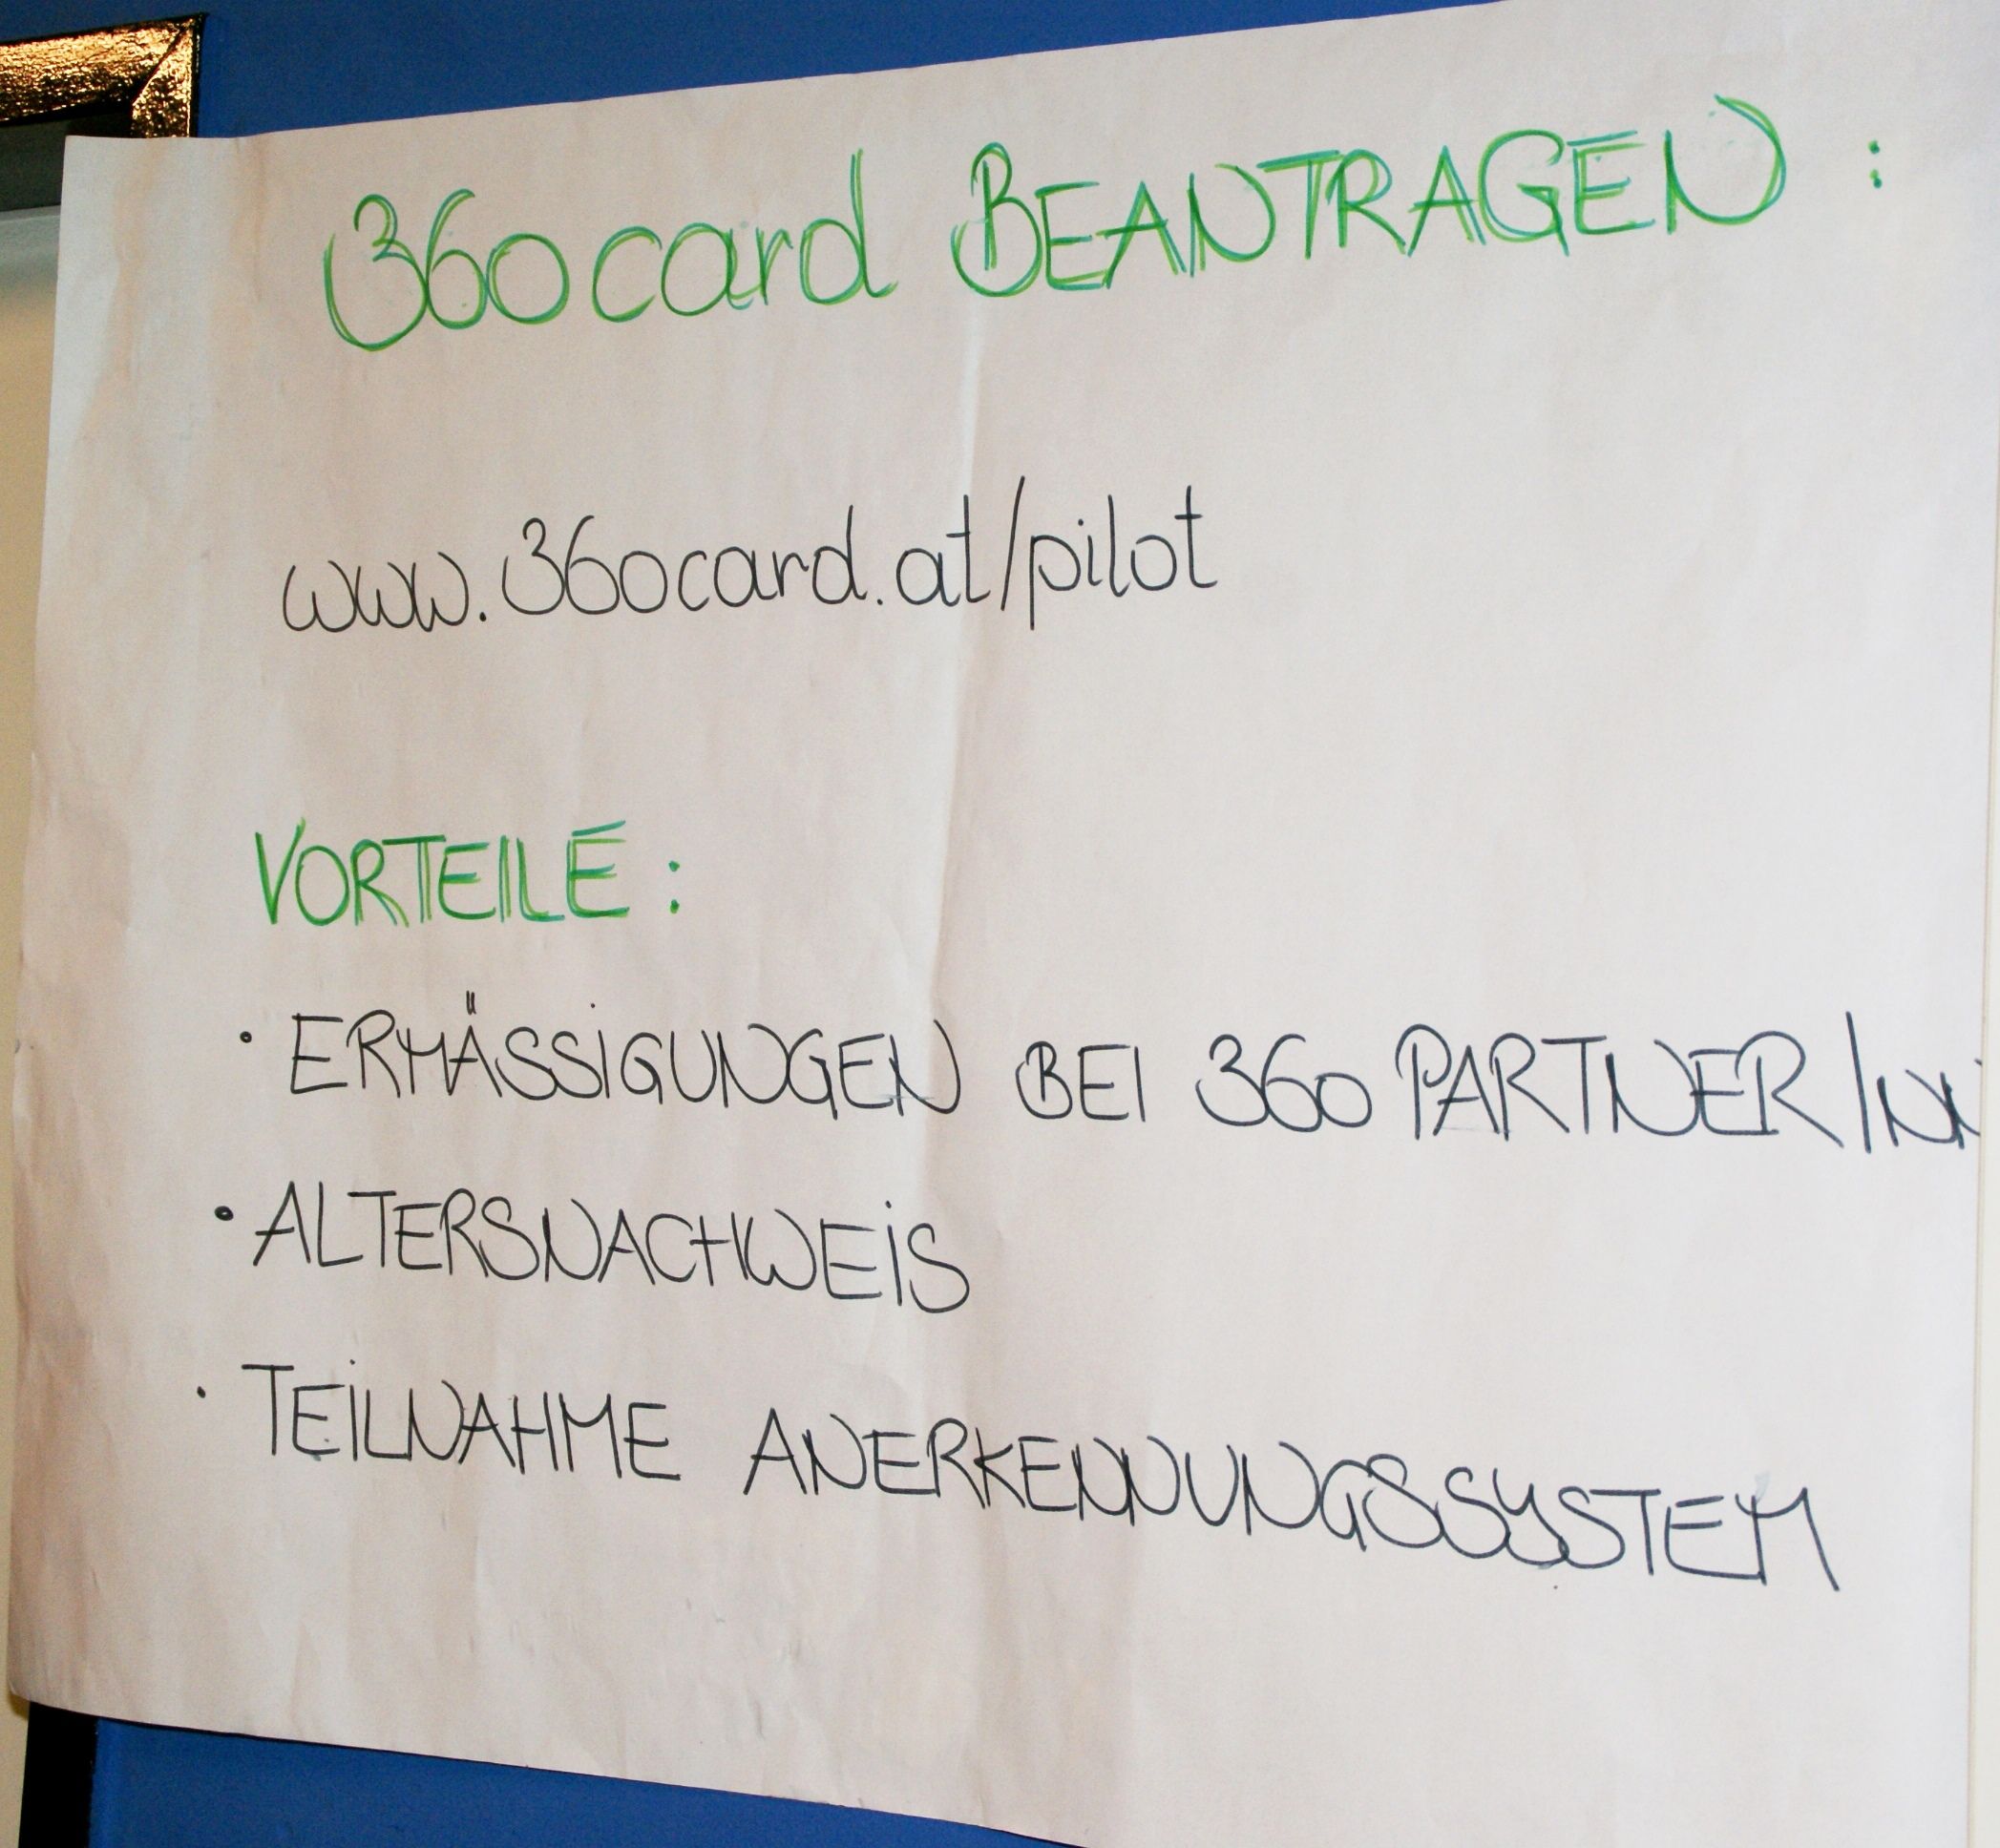 360card BEANTRAGEN :
www.360card.at/pilot
VORTEILE :
• ERMÄSSIGUNGEN BEI 360 PARTNER/INN
• ALTERSNACHWEIS
• TEILNAHME ANERKENNUNGSSYSTEM